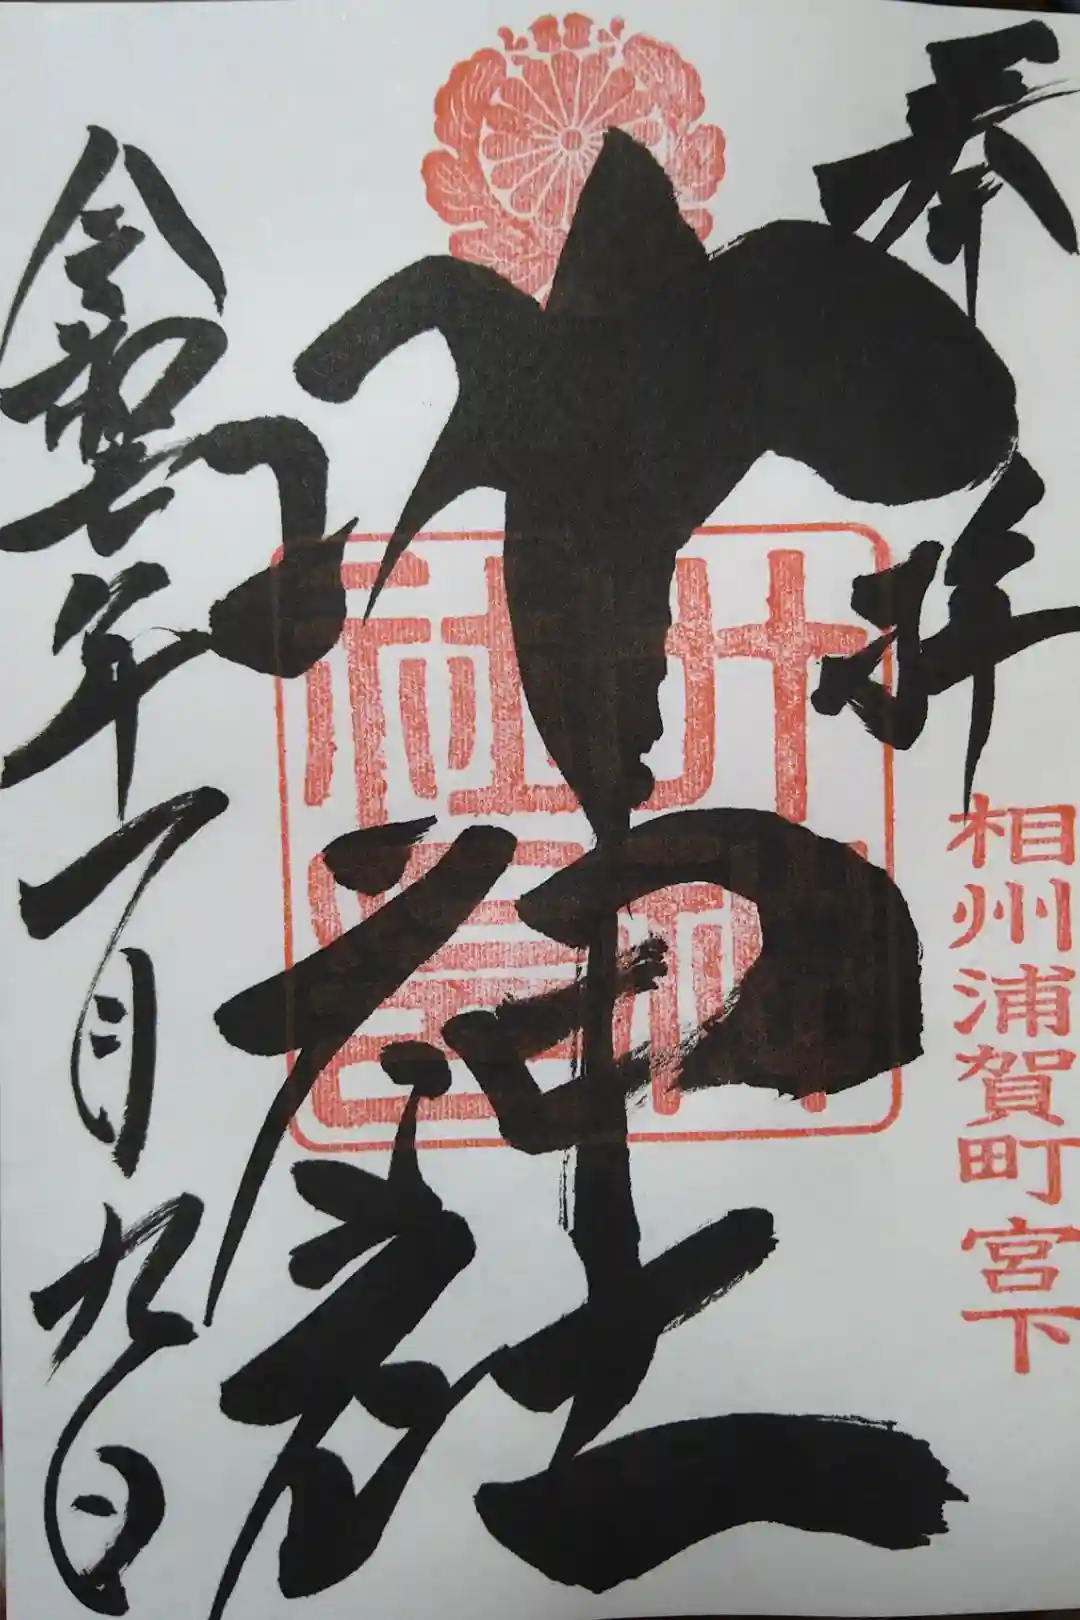 奉拝
相州浦賀町宮下
叶神社
叶神社印
令和七年一月九日